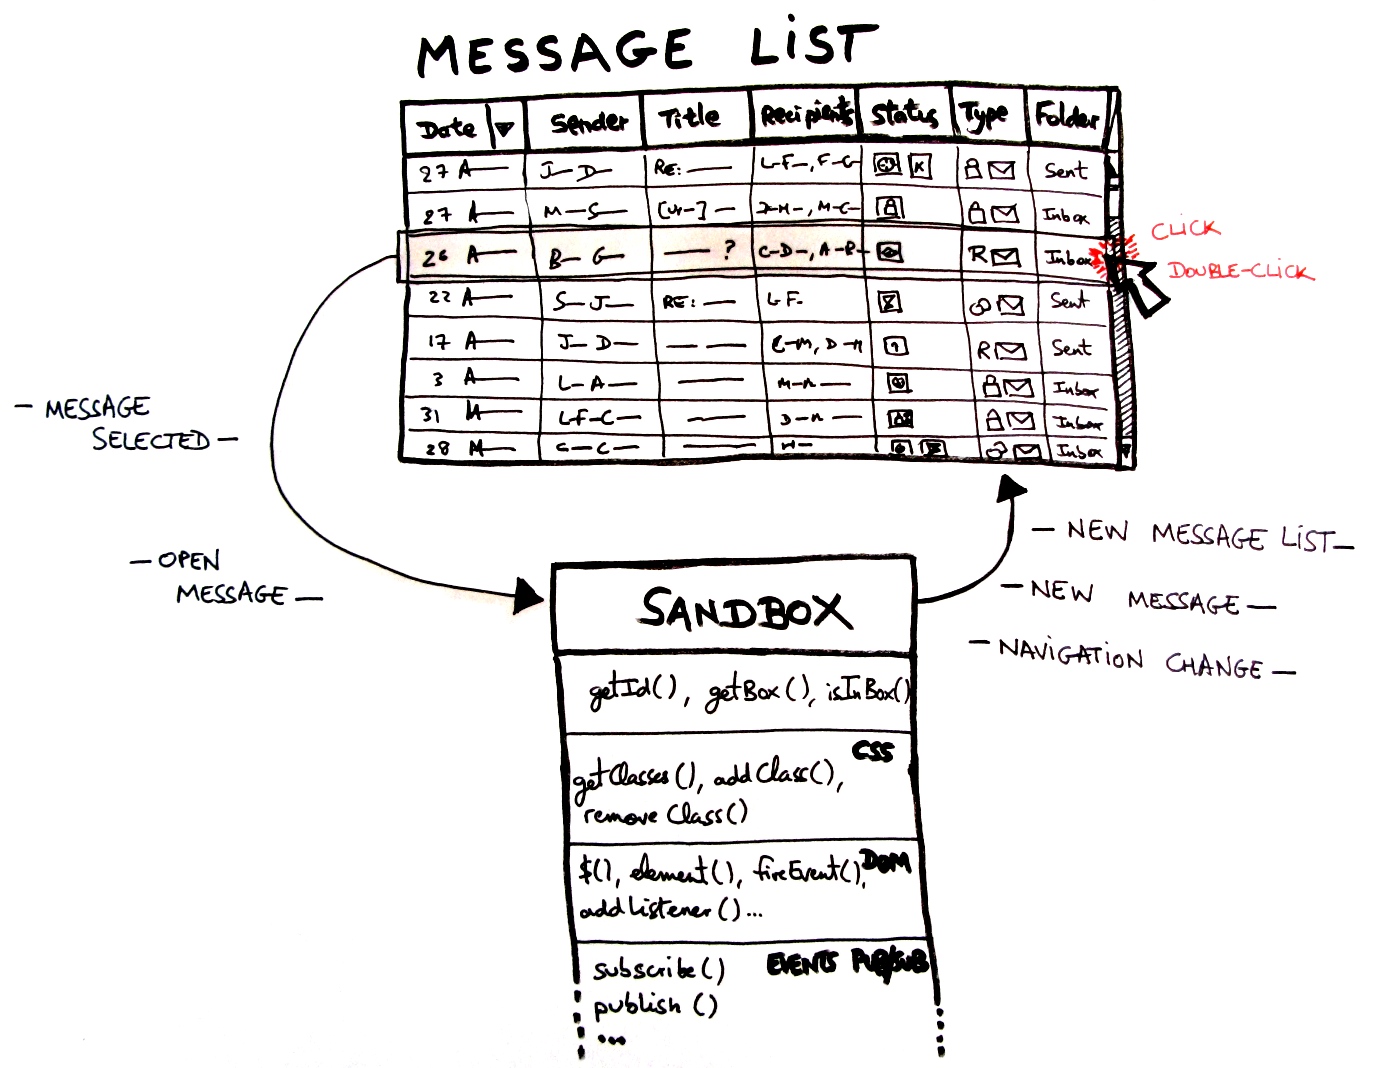 MESSAGE LIST
Date Sender Title Recipients Status Type Folder
27 A J D RE: L F , F G K Sent
27 A M S [Ur ] M , M C Inbox
26 A B G ? C D , A R R Inbox
22 A S J RE: L F Sent
17 A J D M, D R Sent
3 A L A M Inbox
31 M L F C D Inbox
28 M C Inbox
CLICK
DOUBLE-CLICK
– MESSAGE
SELECTED –
– OPEN
MESSAGE –
– NEW MESSAGE LIST –
– NEW MESSAGE –
– NAVIGATION CHANGE –
SANDBOX
getId(), getBox(), isInBox()
CSS
getClasses(), addClass(),
removeClass()
DOM
$(), element(), fireEvent(),
addListener()...
EVENTS PUB/SUB
subscribe()
publish()
...